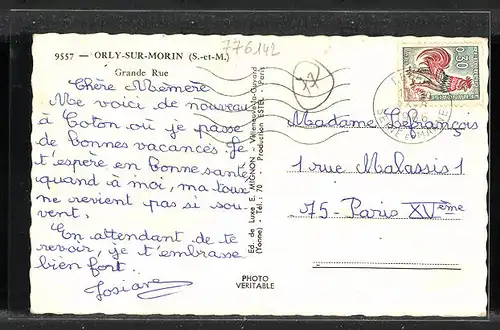 9557 — ORLY-SUR-MORIN (S.-et-M.)
Grande Rue
776142
77
Chère Mémère
Me voici de nouveau
à Coton où je passe
de bonnes vacances. Je
t'espère en bonne santé
quand à moi, ma toux
ne revient pas si sou-
vent.
En attendant de te
revoir, je t'embrasse
bien fort.
Josiane
PHOTO
VERITABLE
Ed. de Luxe E. MIGNON - Villeneuve-la-Guyard
(Yonne) - Tél.: 70 Production ESTEL - Paris
0,30
Madame Lefrançois
1 rue Malassis 1
75-Paris XVème